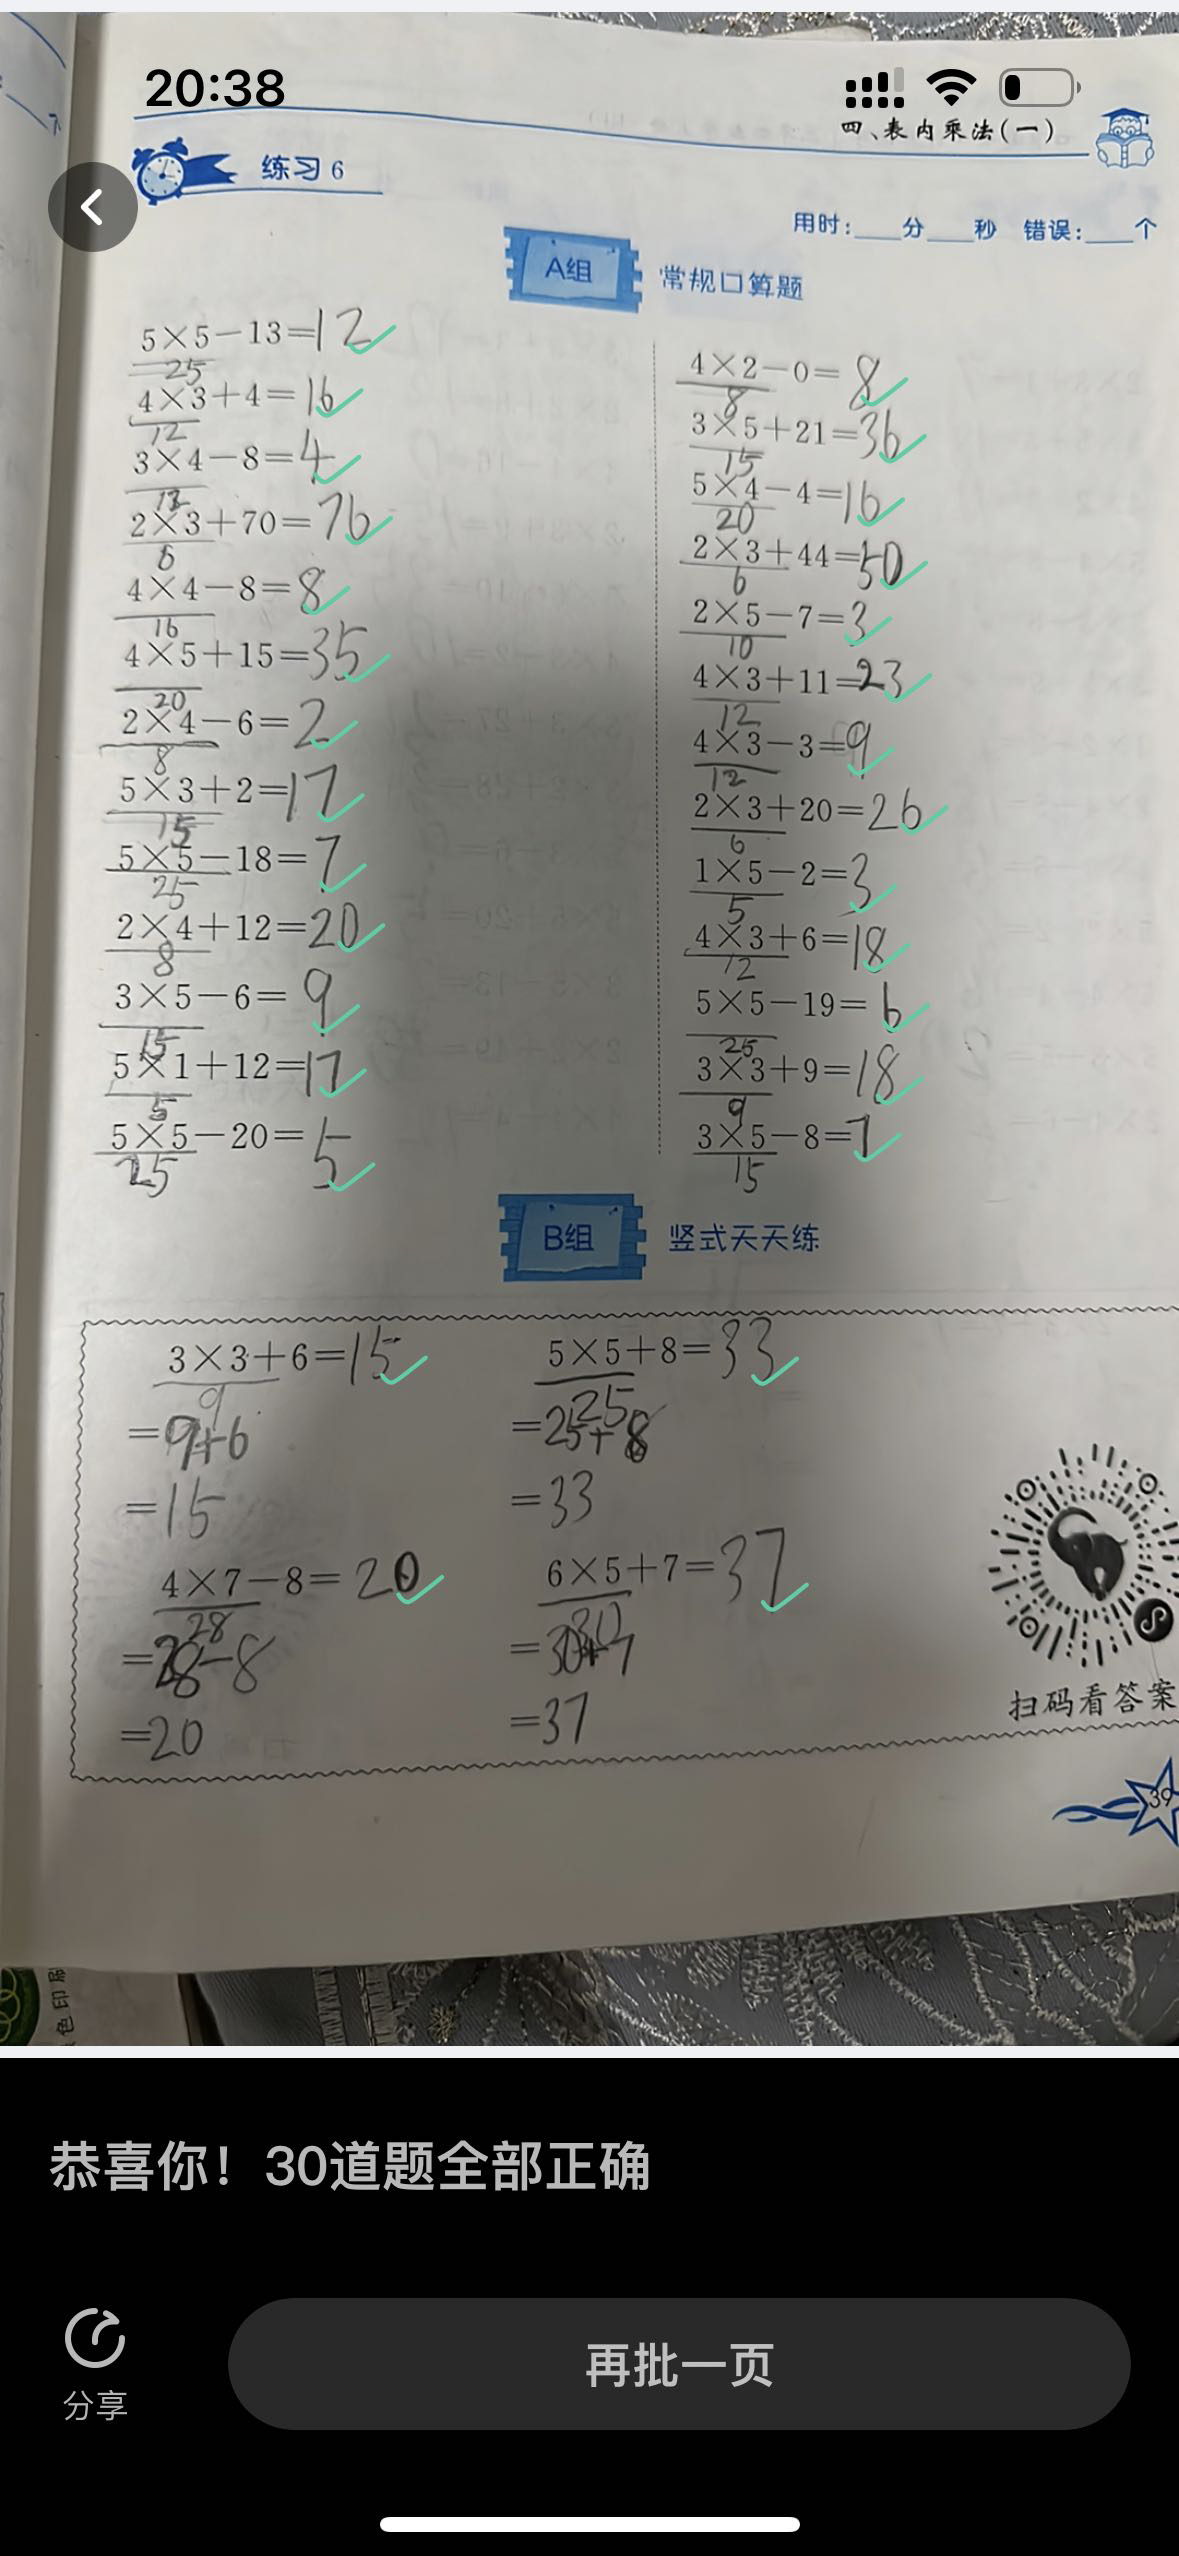 20:38
四、表内乘法(一)
练习 6
用时:___分___秒 错误:___个
A组 常规口算题
5×5-13=12
25
4×3+4=16
12
3×4-8=4
12
2×3+70=76
6
4×4-8=8
16
4×5+15=35
20
2×4-6=2
8
5×3+2=17
15
5×5-18=7
25
2×4+12=20
8
3×5-6=9
15
5×1+12=17
5
5×5-20=5
25
4×2-0=8
8
3×5+21=36
15
5×4-4=16
20
2×3+44=50
6
2×5-7=3
10
4×3+11=23
12
4×3-3=9
12
2×3+20=26
6
1×5-2=3
5
4×3+6=18
12
5×5-19=6
25
3×3+9=18
9
3×5-8=7
15
B组 竖式天天练
3×3+6=15
9
=9+6
=15
5×5+8=33
25
=25+8
=33
4×7-8=20
28
=28-8
=20
6×5+7=37
30
=30+7
=37
扫码看答案
39
色印刷
恭喜你！30道题全部正确
分享
再批一页